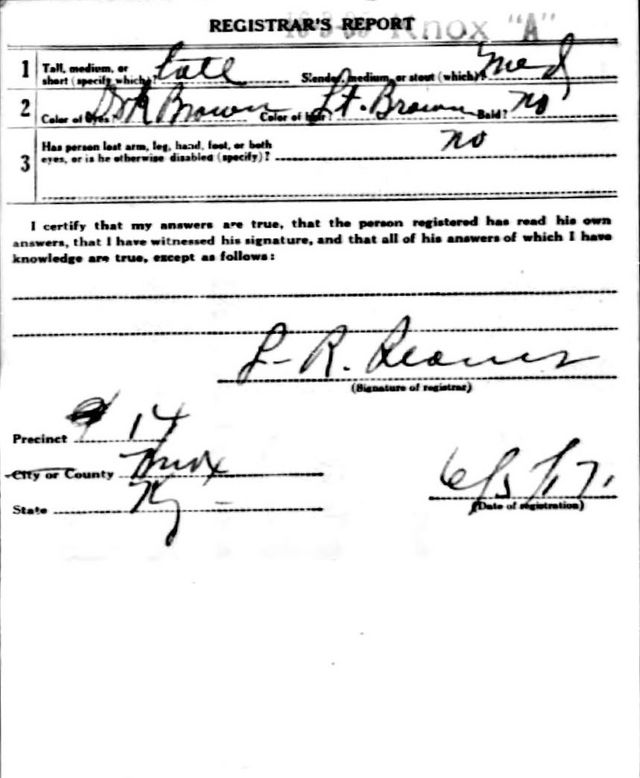 REGISTRAR'S REPORT
Knox "A"
1 Tall, medium, or short (specify which)? tall Slender, medium, or stout (which)? Med
2 Color of eyes? Dk Brown Color of hair? Lt. Brown Bald? no
3 Has person lost arm, leg, hand, foot, or both
eyes, or is he otherwise disabled (specify)? no
I certify that my answers are true, that the person registered has read his own
answers, that I have witnessed his signature, and that all of his answers of which I have
knowledge are true, except as follows:
L. R.
(Signature of registrar)
Precinct 14
City or County Knox
State Ky
6/5/17.
(Date of registration)